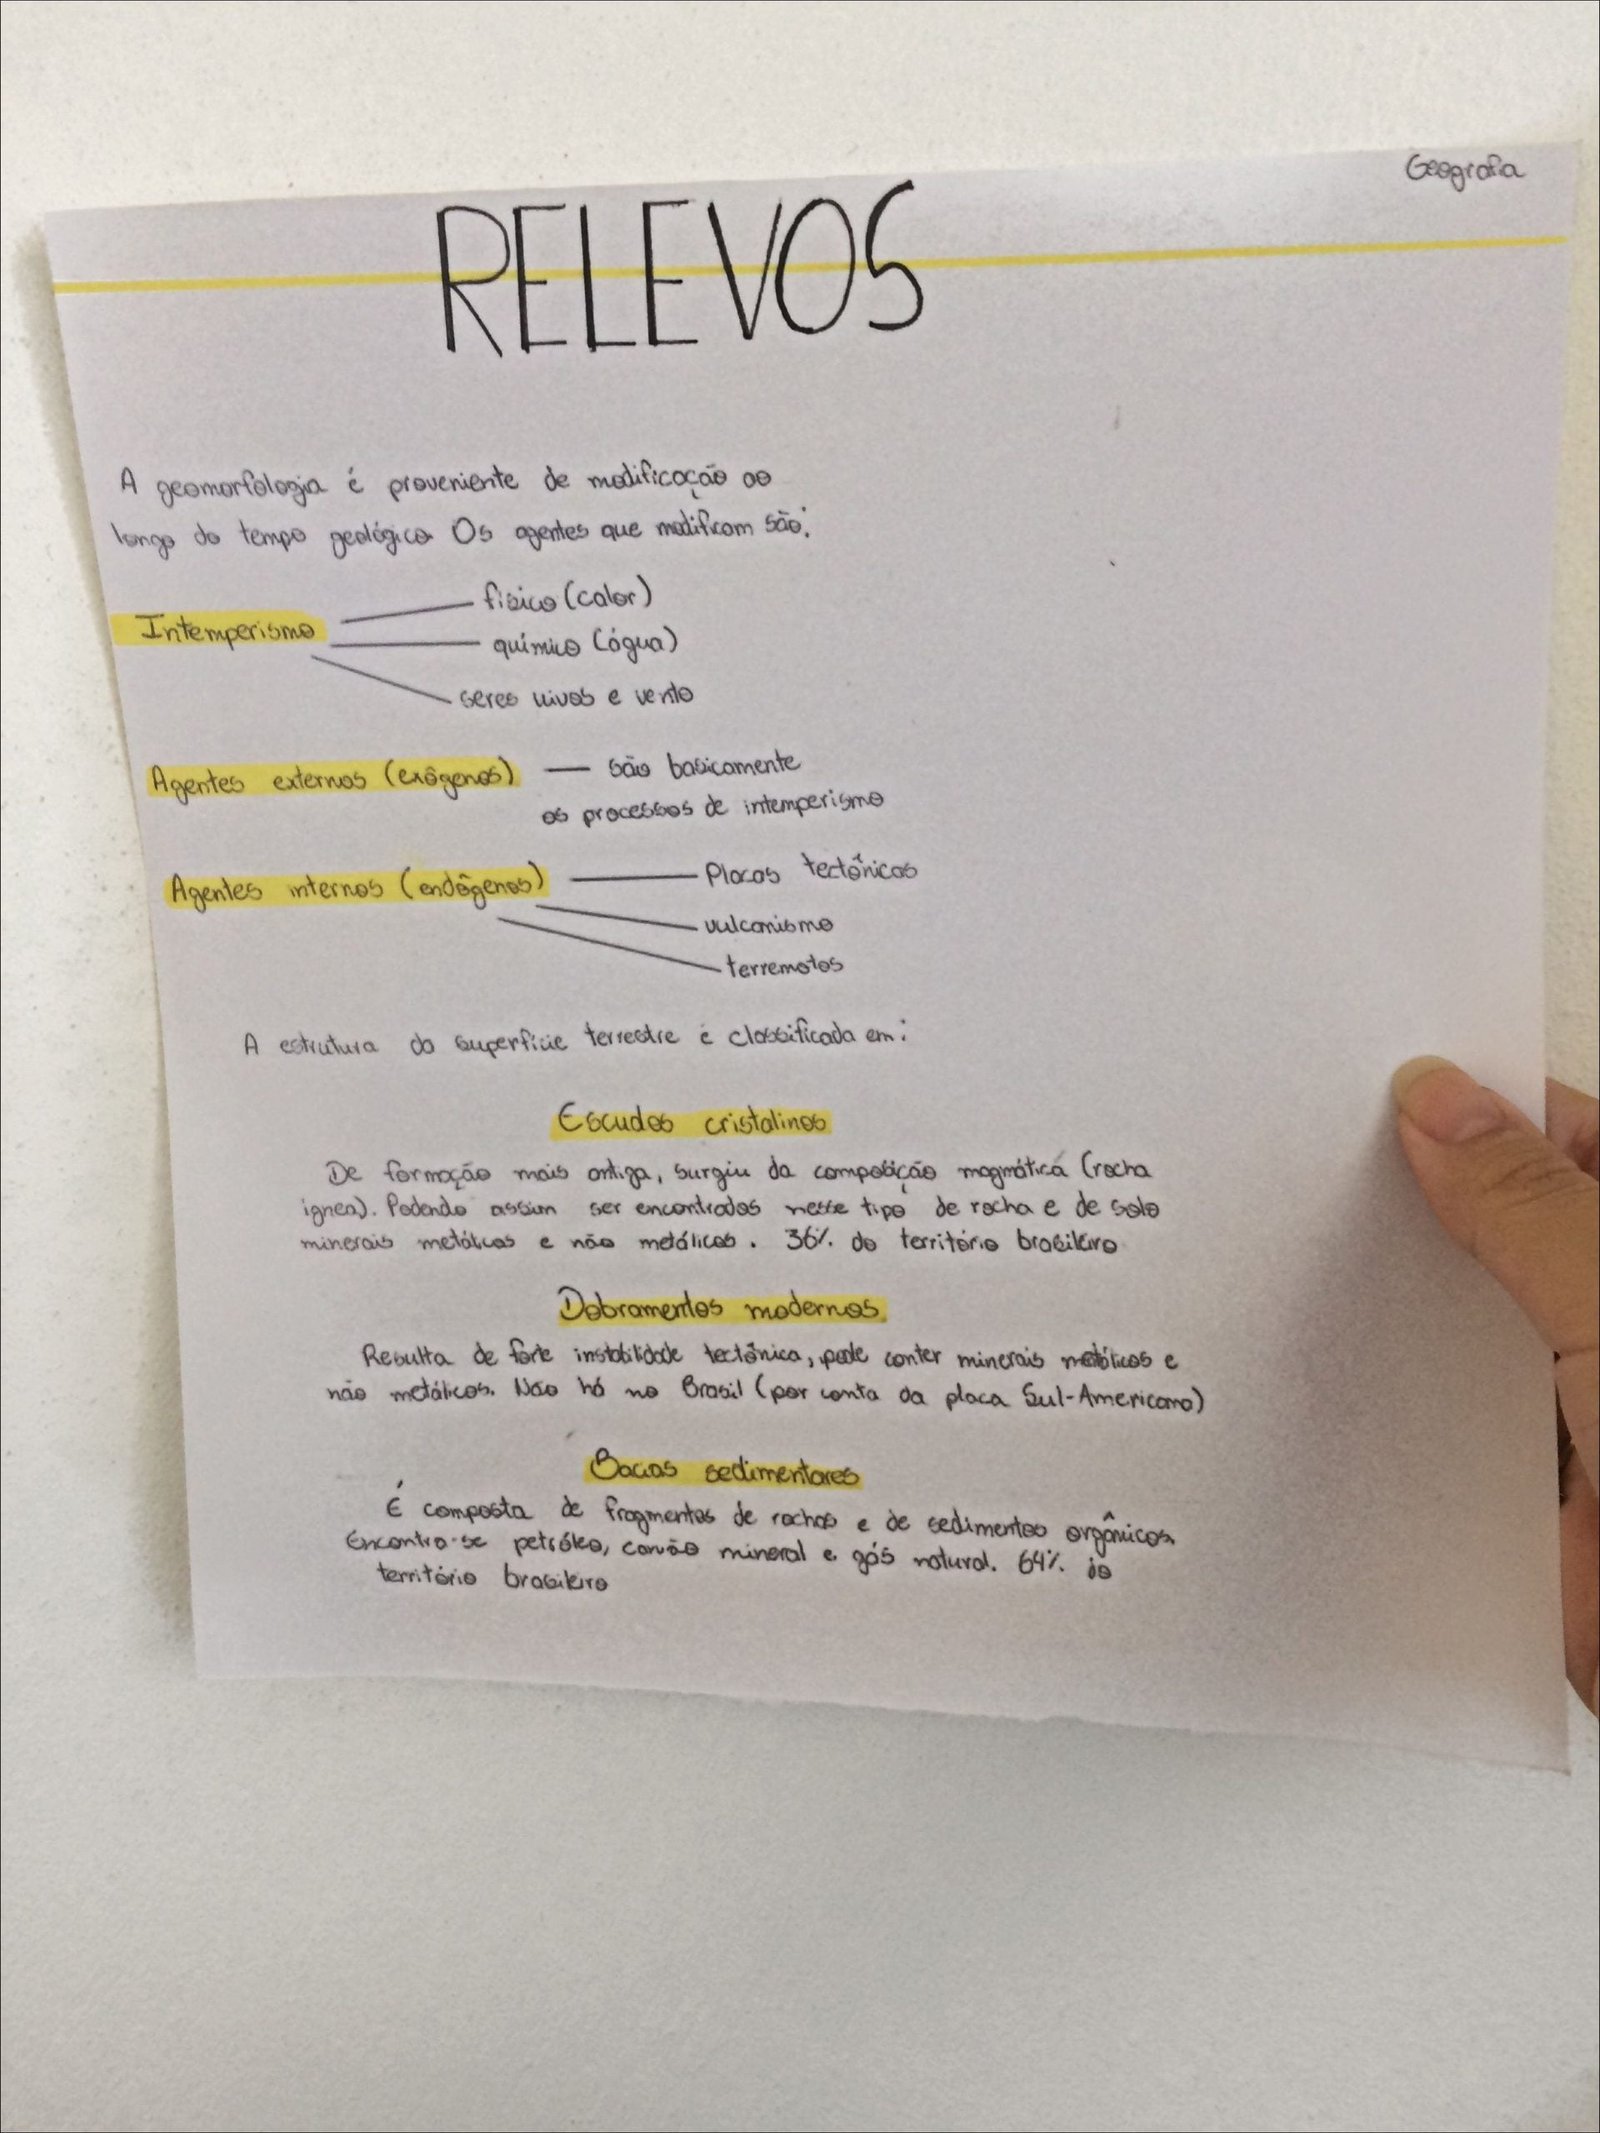 Geografia
RELEVOS
A geomorfologia é proveniente de modificação ao
longo do tempo geológico Os agentes que modificam são:
Intemperismo
físico (calor)
químico (água)
seres vivos e vento
Agentes externos (exôgenos) — são basicamente
os processos de intemperismo
Agentes internos (endôgenos)
Placas tectônicas
vulcanismo
terremotos
A estrutura da superfície terrestre é classificada em:
Escudos cristalinos
De formação mais antiga, surgiu da composição magmática (rocha
ignea). Podendo assim ser encontrados nesse tipo de rocha e de solo
minerais metálicos e não metálicos. 36% do território brasileiro
Dobramentos modernos.
Resulta de forte instabilidade tectônica, pode conter minerais metálicos e
não metálicos. Não há no Brasil (por conta da placa Sul-Americana)
Bacias sedimentares
É composta de fragmentos de rochas e de sedimentos orgânicos.
Encontra-se petróleo, carvão mineral e gás natural. 64% do
território brasileiro